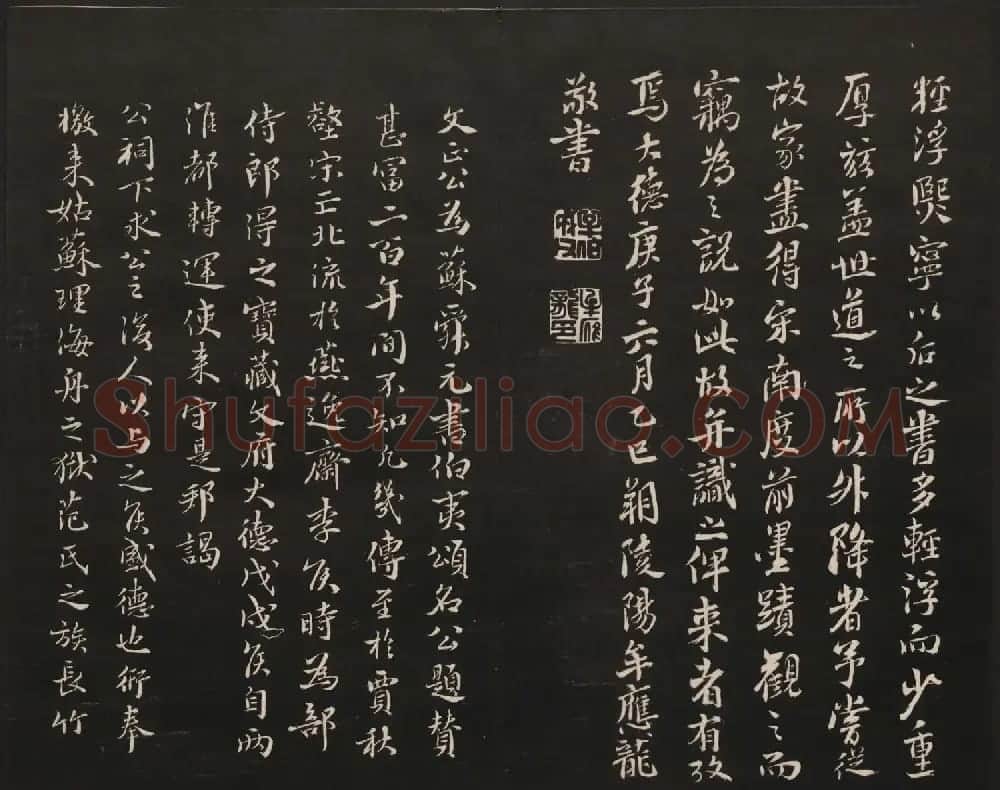 輕浮熙寧以后之書多輕浮而少重
厚玆盖世道之所以外降者予嘗從
故家盡得宋南度前墨蹟觀之而
竊為之說如此故并識之俾来者有攷
焉大德庚子六月乙巳朔陵陽牟應龍
敬書
文正公為蘇舜元書伯夷頌名公題贊
甚富二百年間不知凡幾傳至於賈秋
壑宋亡北流於燕逸齋李侯時為部
侍郎得之寶藏文府大德戊戌侯自兩
淮都轉運使来守是邦謁
公祠下求公之後人以与之侯盛德也衍奉
檄来姑蘇理海舟之獄范氏之族長竹
Shufaziliao.COM